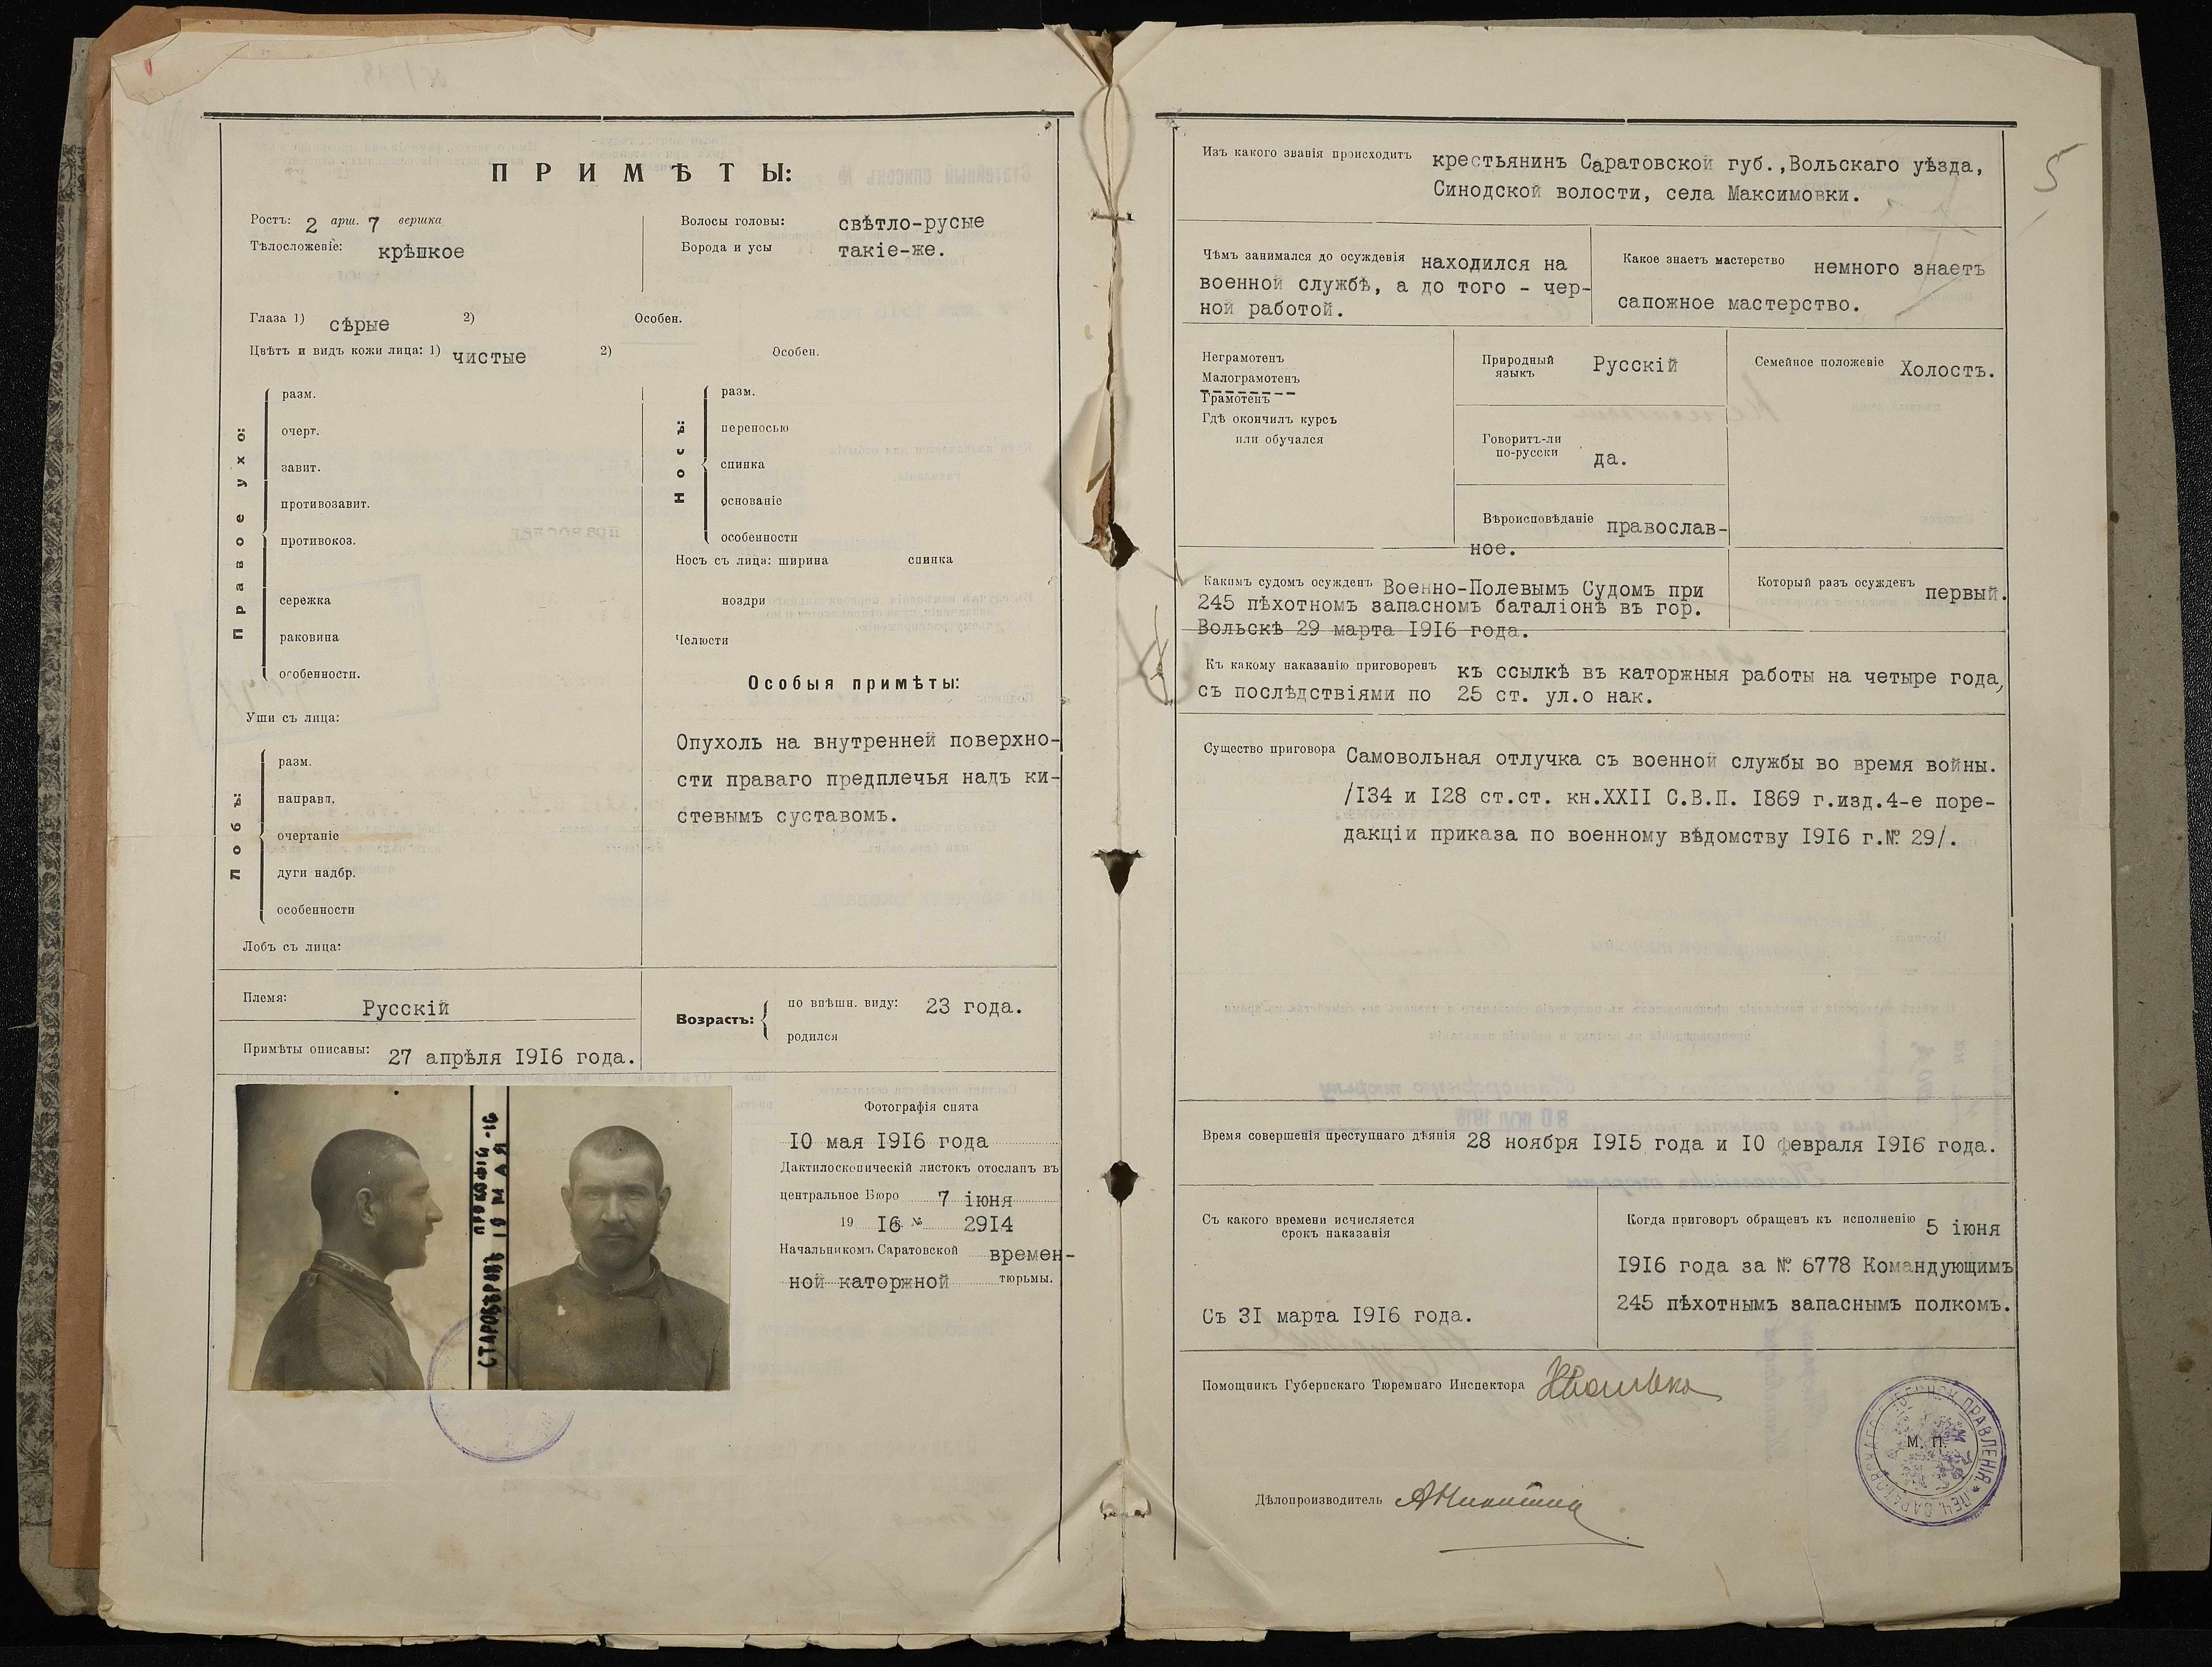 ПРИМѢТЫ:
Ростъ: 2 арш. 7 вершка
Тѣлосложеніе: крѣпкое
Волосы головы: свѣтло-русые
Борода и усы такіе-же.
Глаза 1) сѣрые 2) Особен.
Цвѣтъ и видъ кожи лица: 1) чистые 2) Особен.
Правое ухо:
разм.
очерт.
завит.
противозавит.
противокоз.
сережка
раковина
особенности.
Уши съ лица:
Лобъ:
разм.
направл.
очертаніе
дуги надбр.
особенности
Лобъ съ лица:
Носъ:
разм.
переносью
спинка
основаніе
особенности
Носъ съ лица: ширина спинка
ноздри
Челюсти
Особыя примѣты:
Опухоль на внутренней поверхно-
сти праваго предплечья надъ ки-
стевымъ суставомъ.
Племя: Русскій
Примѣты описаны: 27 апрѣля 1916 года.
Возрастъ:
по внѣшн. виду: 23 года.
родился
СТАРОВѢРОВЪ ПРОКОФІЙ -16
10 МАЯ
Фотографія снята
10 мая 1916 года
Дактилоскопическій листокъ отосланъ въ
центральное Бюро 7 іюня
19 16 г. № 2914
Начальникомъ Саратовской времен-
ной каторжной тюрьмы.
5
Изъ какого званія происходитъ крестьянинъ Саратовской губ.,Вольскаго уѣзда,
Синодской волости, села Максимовки.
Чѣмъ занимался до осужденія находился на
военной службѣ, а до того - чер-
ной работой.
Какое знаетъ мастерство немного знаетъ
сапожное мастерство.
Неграмотенъ
Малограмотенъ
Грамотенъ
Гдѣ окончилъ курсъ
или обучался
Природный
языкъ Русскій
Говоритъ-ли
по-русски да.
Вѣроисповѣданіе православ-
ное.
Семейное положеніе Холостъ.
Какимъ судомъ осужденъ Военно-Полевымъ Судомъ при
245 пѣхотномъ запасномъ баталіонѣ въ гор.
Вольскѣ 29 марта 1916 года.
Который разъ осужденъ первый.
Къ какому наказанію приговоренъ къ ссылкѣ въ каторжныя работы на четыре года,
съ послѣдствіями по 25 ст. ул.о нак.
Существо приговора Самовольная отлучка съ военной службы во время войны.
/134 и 128 ст.ст. кн.XXII С.В.П. 1869 г.изд.4-е поре-
дакціи приказа по военному вѣдомству 1916 г.№ 29/.
Время совершенія преступнаго дѣянія 28 ноября 1915 года и 10 февраля 1916 года.
Съ какого времени исчисляется
срокъ наказанія
Съ 31 марта 1916 года.
Когда приговоръ обращенъ къ исполненію 5 іюня
1916 года за № 6778 Командующимъ
245 пѣхотнымъ запаснымъ полкомъ.
Помощникъ Губернскаго Тюремнаго Инспектора
М. П.
Дѣлопроизводитель АНикитин